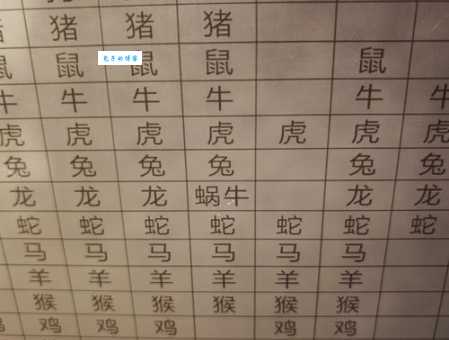 猪 猪 猪
鼠 鼠 鼠 鼠 鼠
牛 牛 牛 牛 牛 牛
虎 虎 虎 虎 虎 虎 虎
兔 兔 兔 兔 兔 兔
龙 龙 龙 蜗牛 龙 龙
蛇 蛇 蛇 蛇 蛇 蛇 蛇
马 马 马 马 马 马
羊 羊 羊 羊 羊 羊
猴 猴 猴 猴 猴 猴
鸡 鸡 鸡 鸡 鸡